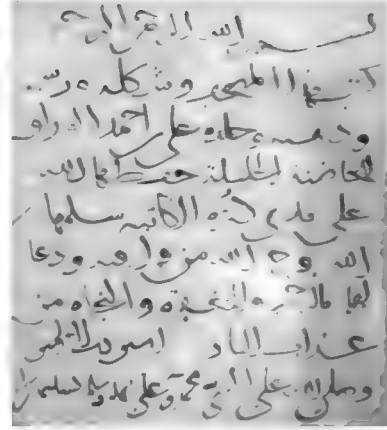 بسم الله الرحمن الرحيم
كتب هذا المصحف وشكله ورسمه
وذهبه وجلده علي بن احمد الوراق
للحاضنة الجليلة حفظها الله
على يدي درة الكاتبة سلمها
الله فرحم الله من قرا فيه ودعا
لهما بالرحمة والمغفرة والنجاة من
عذاب النار امين رب العالمين
وصلى الله على النبي محمد وعلى اله وسلم تسليما